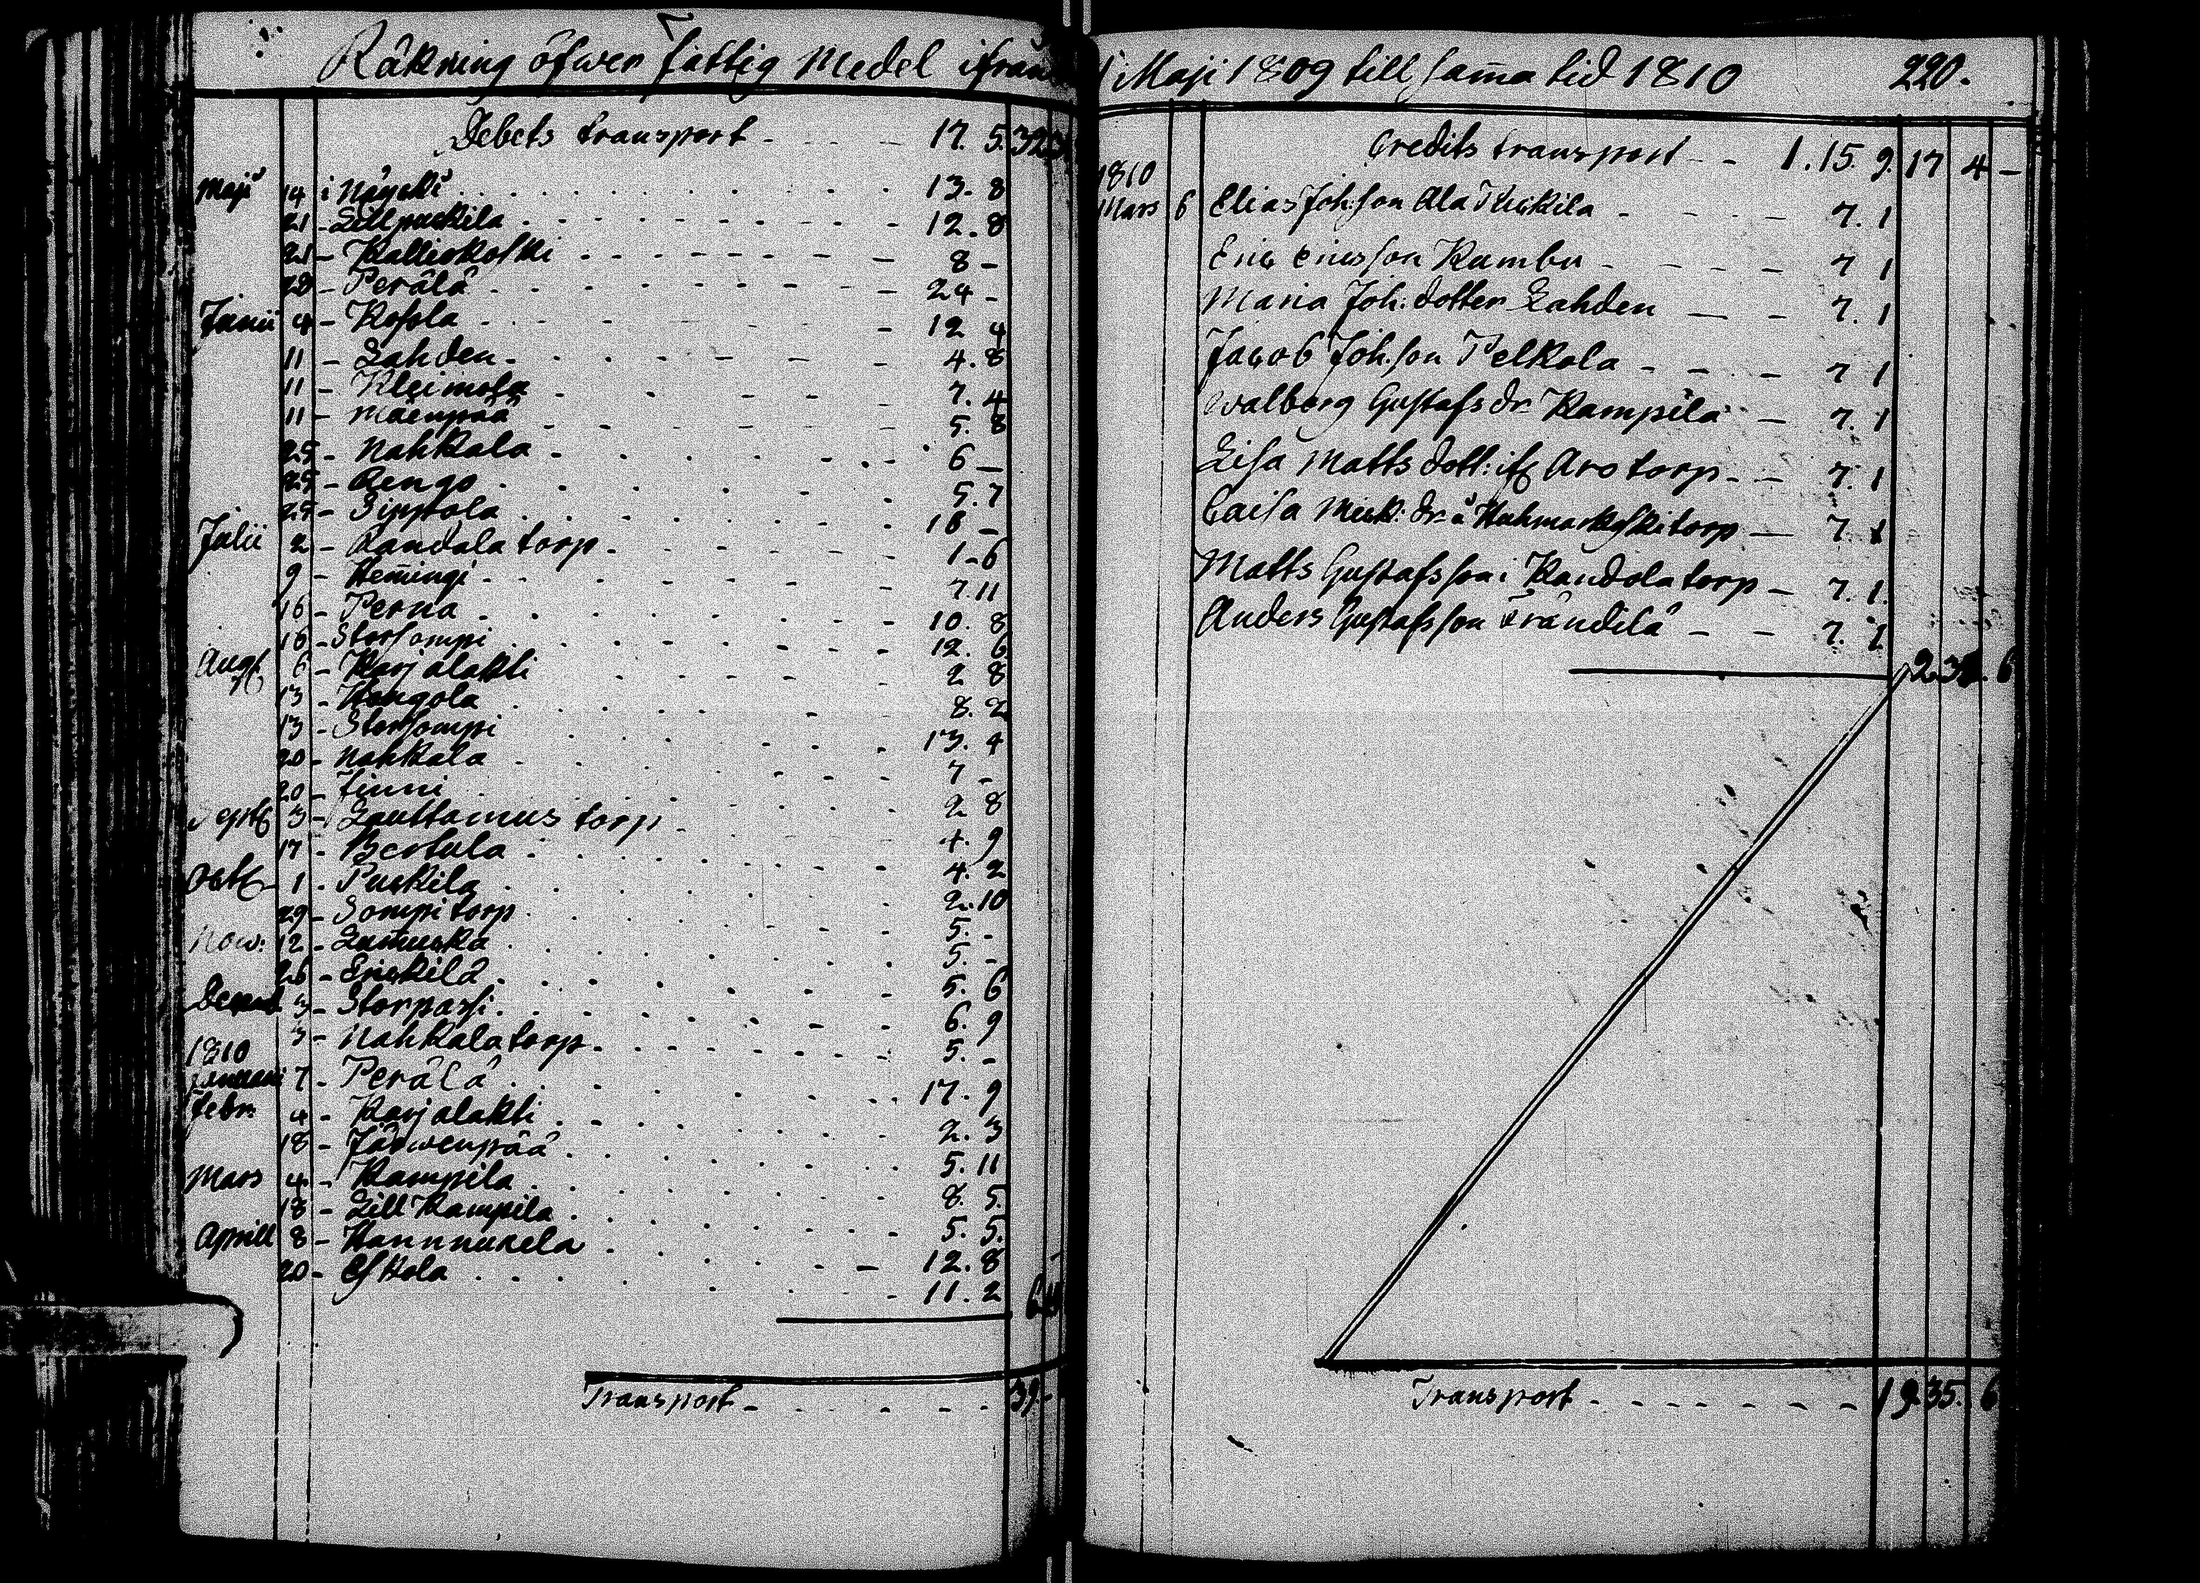 Räkning öfwer Fattig Medel ifrån
Debets transport - - - - 17. 5. 32
Maji 14 i Näyski 13. 8
21 - Lillpuskila 12. 8
21 - Kalliokoski 8 -
28 - Perälä 24 -
Junii 4 - Kosola 12 4
11 - Lahden 4. 8
11 - Kleimola 7. 4
11 - Mäenpää 5. 8
25 - Nahkala 6 -
25 - Rengo 5. 7
25 - Sippola 16 -
Julii 2 - Randala torp 1 - 6
9 - Hem̄ingi 7. 11
16 - Perna 10. 8
16 - Storsompi 12. 6
Augt 6 - Karjalakti 2 8
13 - Hangola 8. 2
13 - Storsompi 13. 4
20 - Nahkala 7 -
20 - Finni 2 8
Septr 3 - Lauttamus torp 4. 9
17 - Bertula 4. 2
Octr 1 - Puskila 2. 10
29 - Sompi torp 5. -
Now: 12 - 5. -
26 - 5. 6
Decemb 3 - Storpassi 6. 9
3 - Nahkala torp 5. -
1810
Januari 7 - Perälä 17. 9
Febr. 4 - Karjalakti 2. 3
18 - Järwenpää 5. 11
Mars 4 - Kampila 8. 5.
18 - Lill Kampila 5. 5.
Aprill 8 - Hannukela 12. 8
20 - Eskola 11. 2
Transport - 39 -
1 Maji 1809 till sam̄a tid 1810 220.
Credits transport - - 1. 15. 9. 17 4 -
1810
Mars 6 Elias Joh:son Ala Puskila - - - 7. 1
Eric Ericsson Rumbu - - - 7 1
Maria Joh: dotter Lahden - - 7. 1
Jacob Joh:son Pelkola - - - 7 1
Walborg Gustafs dr Kampila - 7. 1
Lisa Matts dott: ifr Aro torp - - 7. 1
Caisa Mick: dr å Huhmarkoski torp - 7. 1
Matts Gustafsson i Kandola torp - 7. 1.
Anders Gustafsson Frändilä - - 7. 1
2. 31. 6
Transport - - - - - - 19. 35. 6